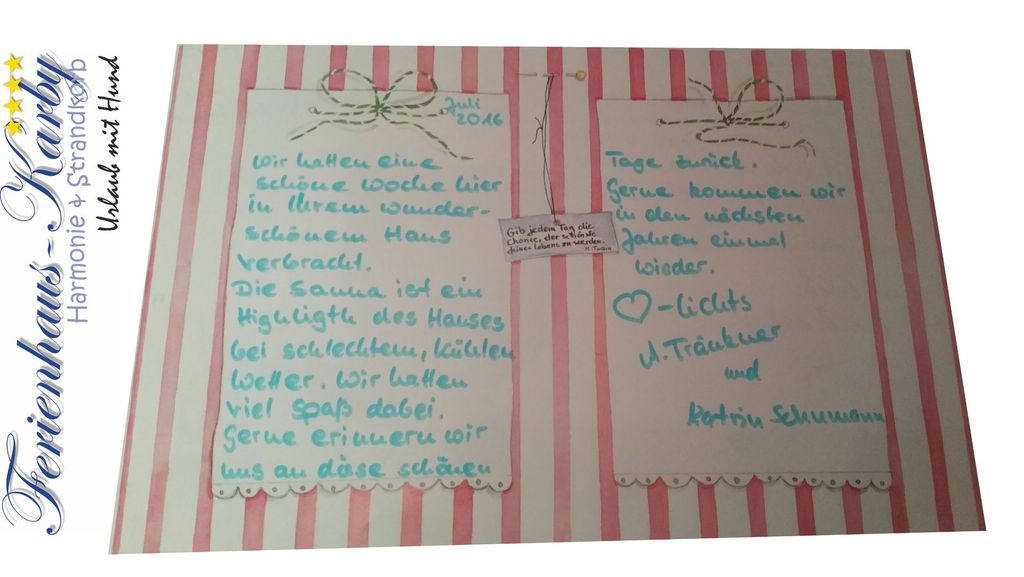 Ferienhaus-Karby
Harmonie & Strandkorb
Urlaub mit Hund
Juli
2016
Wir hatten eine
schöne Woche hier
in Ihrem wunder-
schönem Haus
verbracht.
Die Sauna ist ein
Highligth des Hauses
bei schlechtem, kühlen
Wetter. Wir hatten
viel Spaß dabei.
Gerne erinnern wir
uns an diese schönen
Gib jedem Tag die
Chance, der schönste
deines Lebens zu werden.
M. Twain
Tage zurück.
Gerne kommen wir
in den nächsten
Jahren einmal
wieder.
♡-lichts
U. Träukner
und
Katrin Schumann